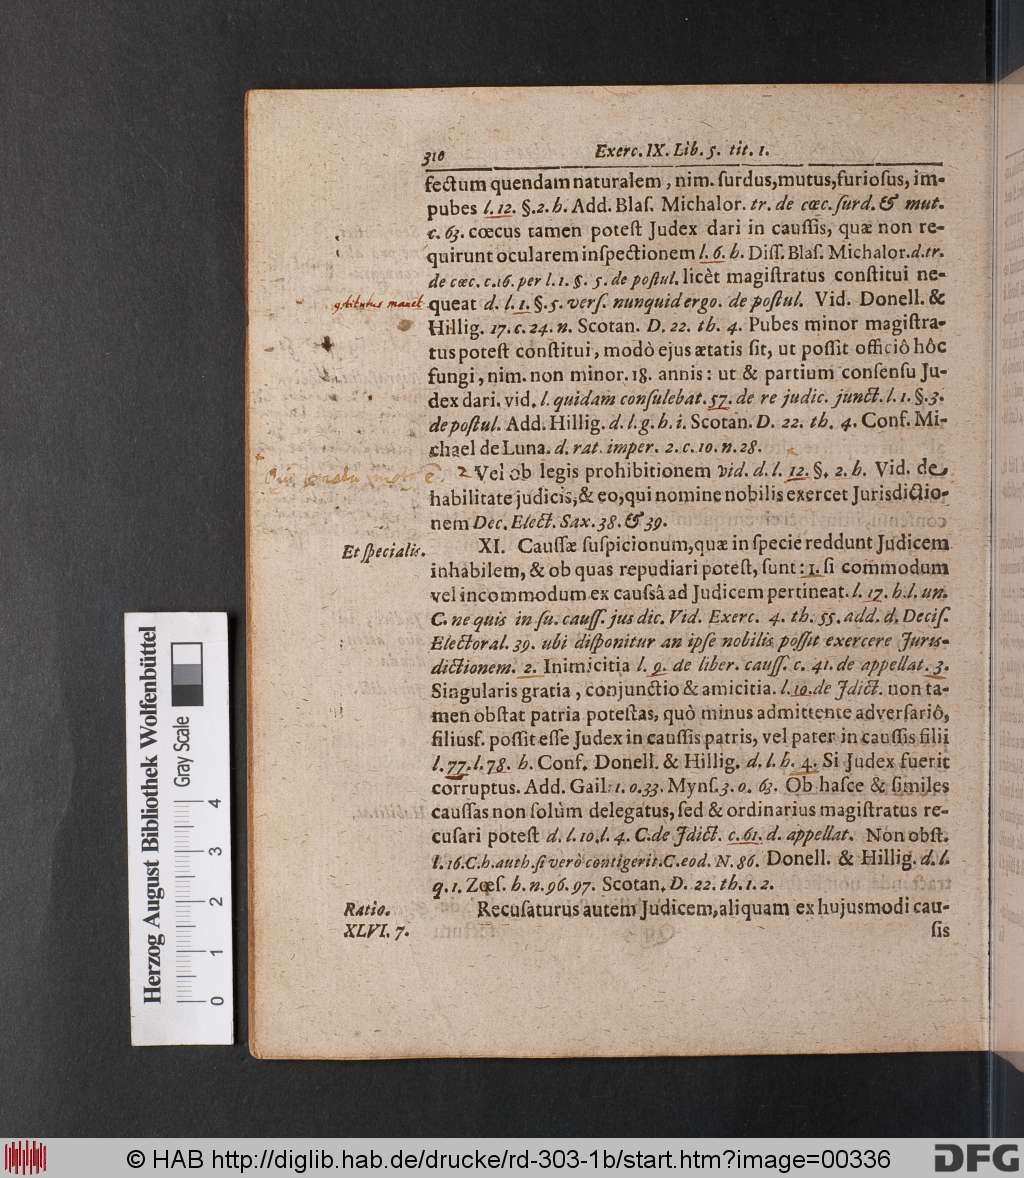 310 Exerc. IX. Lib. 5. tit. 1.
fectum quendam naturalem, nim. ſurdus,mutus,furioſus, im-
pubes l. 12. §.2. h. Add. Blaſ. Michalor. tr. de cœc. ſurd. & mut.
c. 63. cœcus tamen poteſt Judex dari in cauſſis, quæ non re-
quirunt ocularem inſpectionem l. 6. h. Diſſ. Blaſ. Michalor.d.tr.
de cœc. c.16. per l. 1. §. 5. de poſtul. licèt magiſtratus conſtitui ne-
queat d. l. 1. §. 5. verſ. nunquid ergo. de poſtul. Vid. Donell. &
Hillig. 17. c. 24. n. Scotan. D. 22. th. 4. Pubes minor magiſtra-
tus poteſt conſtitui, modò ejus ætatis ſit, ut poſſit officiô hôc
fungi, nim. non minor. 18. annis: ut & partium conſenſu Ju-
dex dari. vid. l. quidam conſulebat. 57. de re judic. junct. l. 1. §. 3.
de poſtul. Add. Hillig. d. l. g. h. i. Scotan. D. 22. th. 4. Conf. Mi-
chael de Luna. d. rat. imper. 2. c. 10. n. 28.
2 Vel ob legis prohibitionem vid. d. l. 12. §. 2. h. Vid. de
habilitate judicis,& eo,qui nomine nobilis exercet Jurisdictio-
nem Dec. Elect. Sax. 38. & 39.
Et ſpecialis.
XI. Cauſſæ ſuſpicionum,quæ in ſpecie reddunt Judicem
inhabilem, & ob quas repudiari poteſt, ſunt: 1. ſi commodum
vel incommodum ex cauſsâ ad Judicem pertineat. l. 17. h. l. un.
C. ne quis in ſu. cauſſ. jus dic. Vid. Exerc. 4. th. 55. add. d. Deciſ.
Electoral. 39. ubi diſponitur an ipſe nobilis poſſit exercere Juris-
dictionem. 2. Inimicitia l. 9. de liber. cauſſ. c. 41. de appellat. 3.
Singularis gratia, conjunctio & amicitia. l. 10. de Jdict. non ta-
men obſtat patria poteſtas, quò minus admittente adverſariô,
filiusf. poſſit eſſe Judex in cauſſis patris, vel pater in cauſſis filii
l. 77. l. 78. h. Conf. Donell. & Hillig. d. l. h. 4. Si Judex fuerit
corruptus. Add. Gail. 1. o. 33. Mynſ. 3. o. 63. Ob haſce & ſimiles
cauſſas non ſolùm delegatus, ſed & ordinarius magiſtratus re-
cuſari poteſt d. l. 10. l. 4. C. de Jdict. c. 61. d. appellat. Non obſt.
l. 16. C. h. auth. ſi verò contigerit. C. eod. N. 86. Donell. & Hillig. d. l.
q. 1. Zœſ. h. n. 96. 97. Scotan. D. 22. th. 1. 2.
Ratio.
XLVI. 7.
Recuſaturus autem Judicem,aliquam ex hujusmodi cau-
ſis
Herzog August Bibliothek Wolfenbüttel
Gray Scale
0 1 2 3 4
© HAB http://diglib.hab.de/drucke/rd-303-1b/start.htm?image=00336
DFG